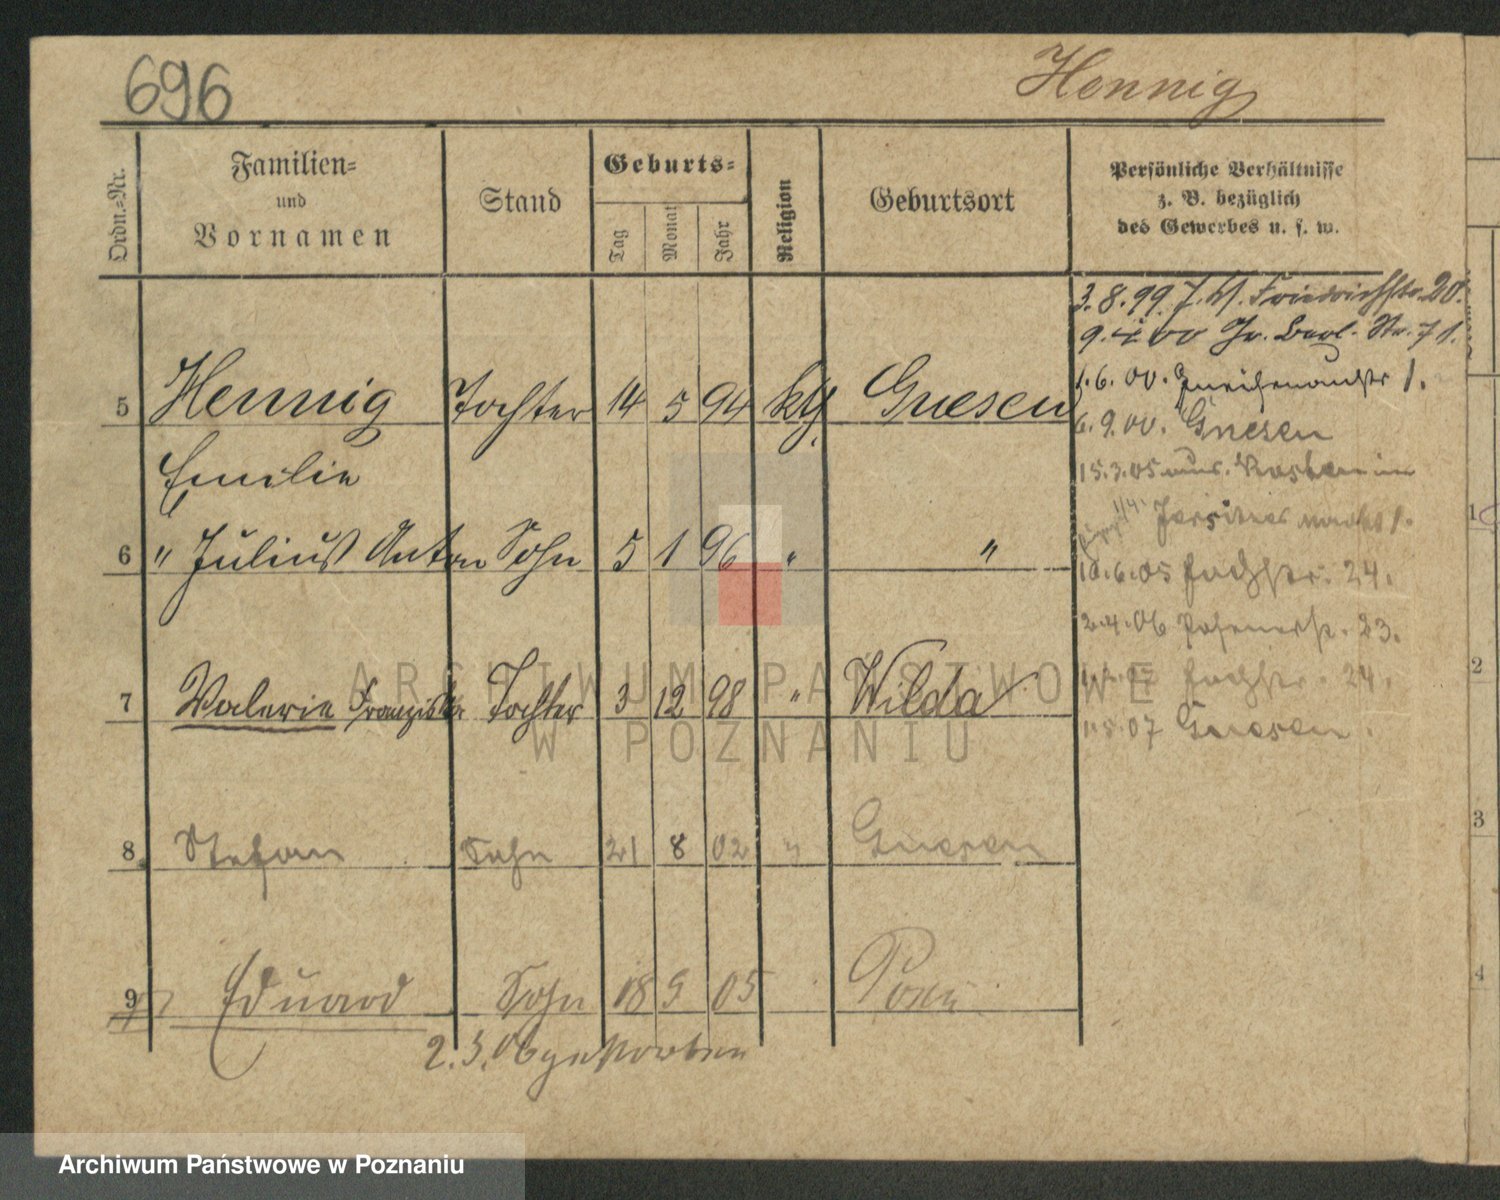 696
Hennig
Ordn.-Nr.
Familien-
und
Vornamen
Stand
Geburts-
Tag
Monat
Jahr
Religion
Geburtsort
Persönliche Verhältnisse
z. B. bezüglich
des Gewerbes u. s. w.
3.8.99. Friedrichstr. 20.
Gr. Berl. Str. 71.
1.6.00. Gneisenaustr 1.
6.9.00. Gnesen
5 Hennig Tochter 14 5 94 kth Gnesen
Emilie
15.3.05
6 " Julius Anton Sohn 5 1 96 " "
10.6.05 24.
2.4.06 Posenerstr. 23.
7 Valerie Franziska Tochter 3 12 98 " Wilda
24.
1.5.07 Gnesen.
8 Stefan Sohn 21 8 02 " Gnesen
9 Eduard Sohn 18 9 05 Posen
2.3.06 gestorben
ARCHIWUM PAŃSTWOWE
W POZNANIU
1
2
3
4
Archiwum Państwowe w Poznaniu